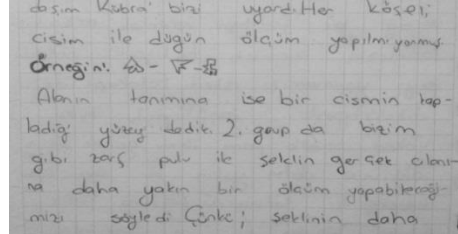 daşım Kübra bizi uyardı. Her köşeli
cisim ile düzgün ölçüm yapılmıyormuş
Örneğin:
Alanın tanımına ise bir cismin kap-
ladığı yüzey dedik. 2. grup da bizim
gibi zarf pulu ile şeklin gerçek alanı-
na daha yakın bir ölçüm yapabileceği-
mizi söyledi Çünkü; şeklinin daha